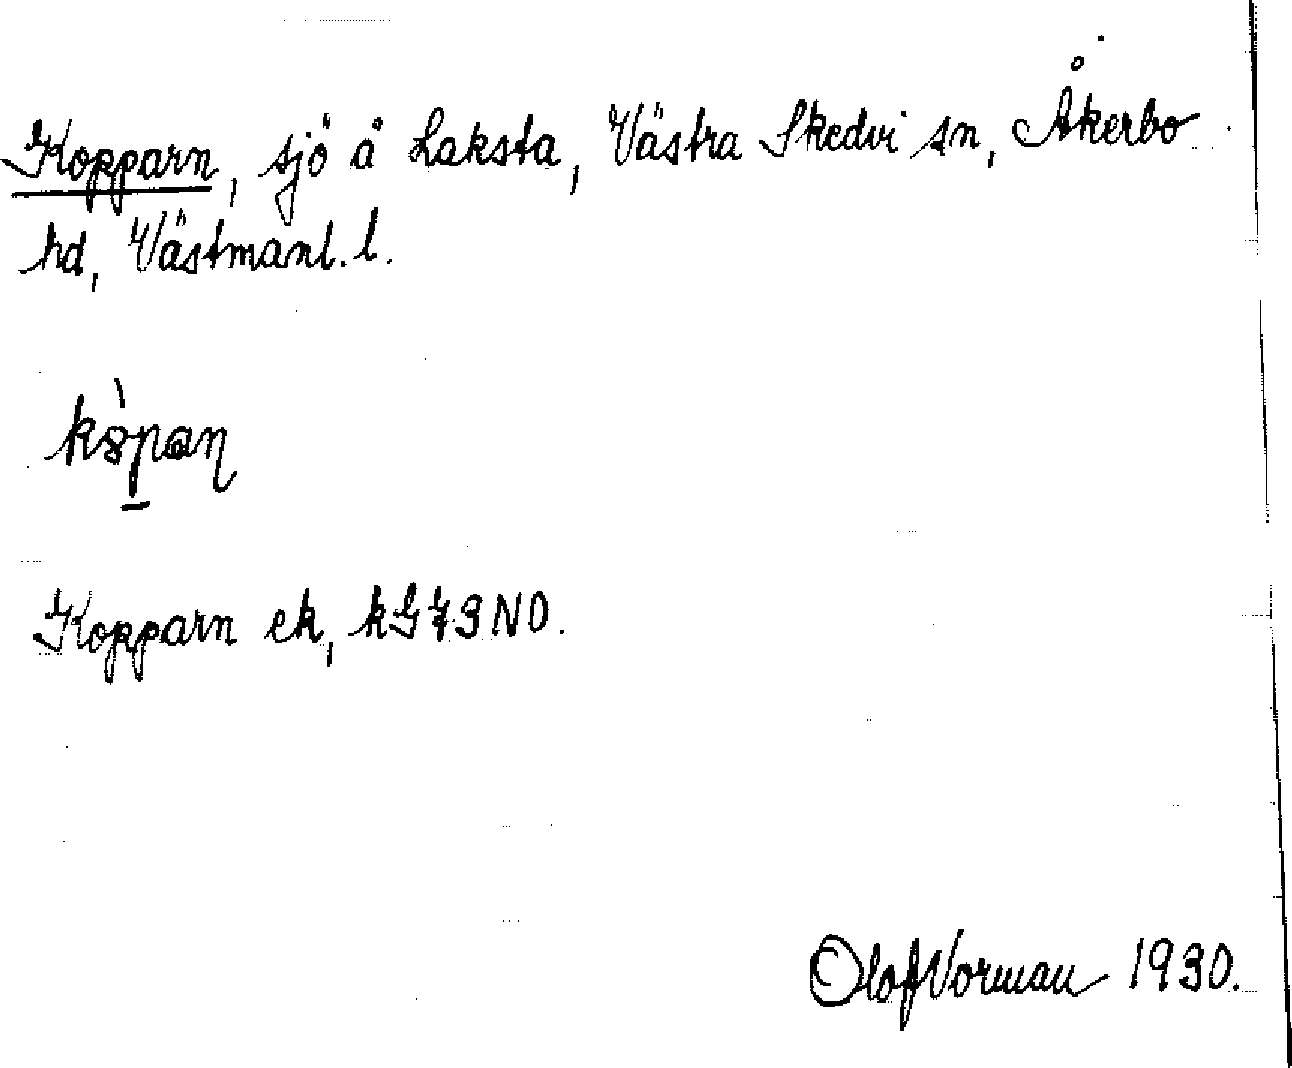 Kopparn, sjö å Laksta, Västra Skedvi sn, Åkerbo
hd, Västmanl. l.
Kopparn ek, kG 73 NO.
Olof Vorman 1930.